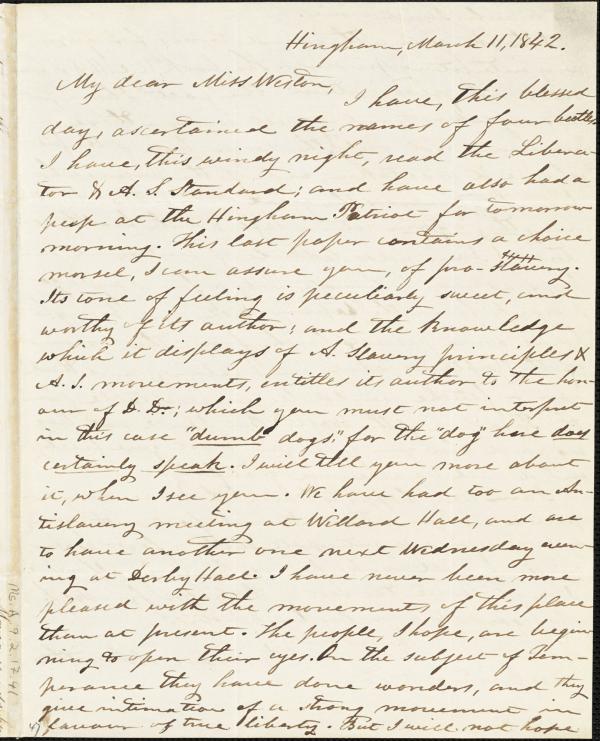 Hingham, March 11, 1842.
My dear Miss Weston,
I have, this blessed
day, ascertained the names of four beetles.
I have, this windy night, read the Libera-
tor & A. S. Standard; and have also had a
peep at the Hingham Patriot for tomorrow
morning. This last paper contains a choice
morsel, I can assure you, of pro-Slavery.
Its tone of feeling is peculiarly sweet, and
worthy of its author; and the knowledge
which it displays of A. Slavery principles &
A. S. movements, entitles its author to the hon-
our of D. Dr.; which you must not interpret
in this case "dumb dogs," for the "dog" here does
certainly speak. I will tell you more about
it, when I see you. We have had too an An-
tislavery meeting at Willard Hall, and are
to have another one next Wednesday even-
ing at Derby Hall. I have never been more
pleased with the movements of this place
than at present. The people, I hope, are begin
ning to open their eyes. On the subject of Tem-
perance they have done wonders, and they
give intimation of a strong movement in
favour of true liberty. But I will not hope
Ms. A. 9. 2. 17. 41